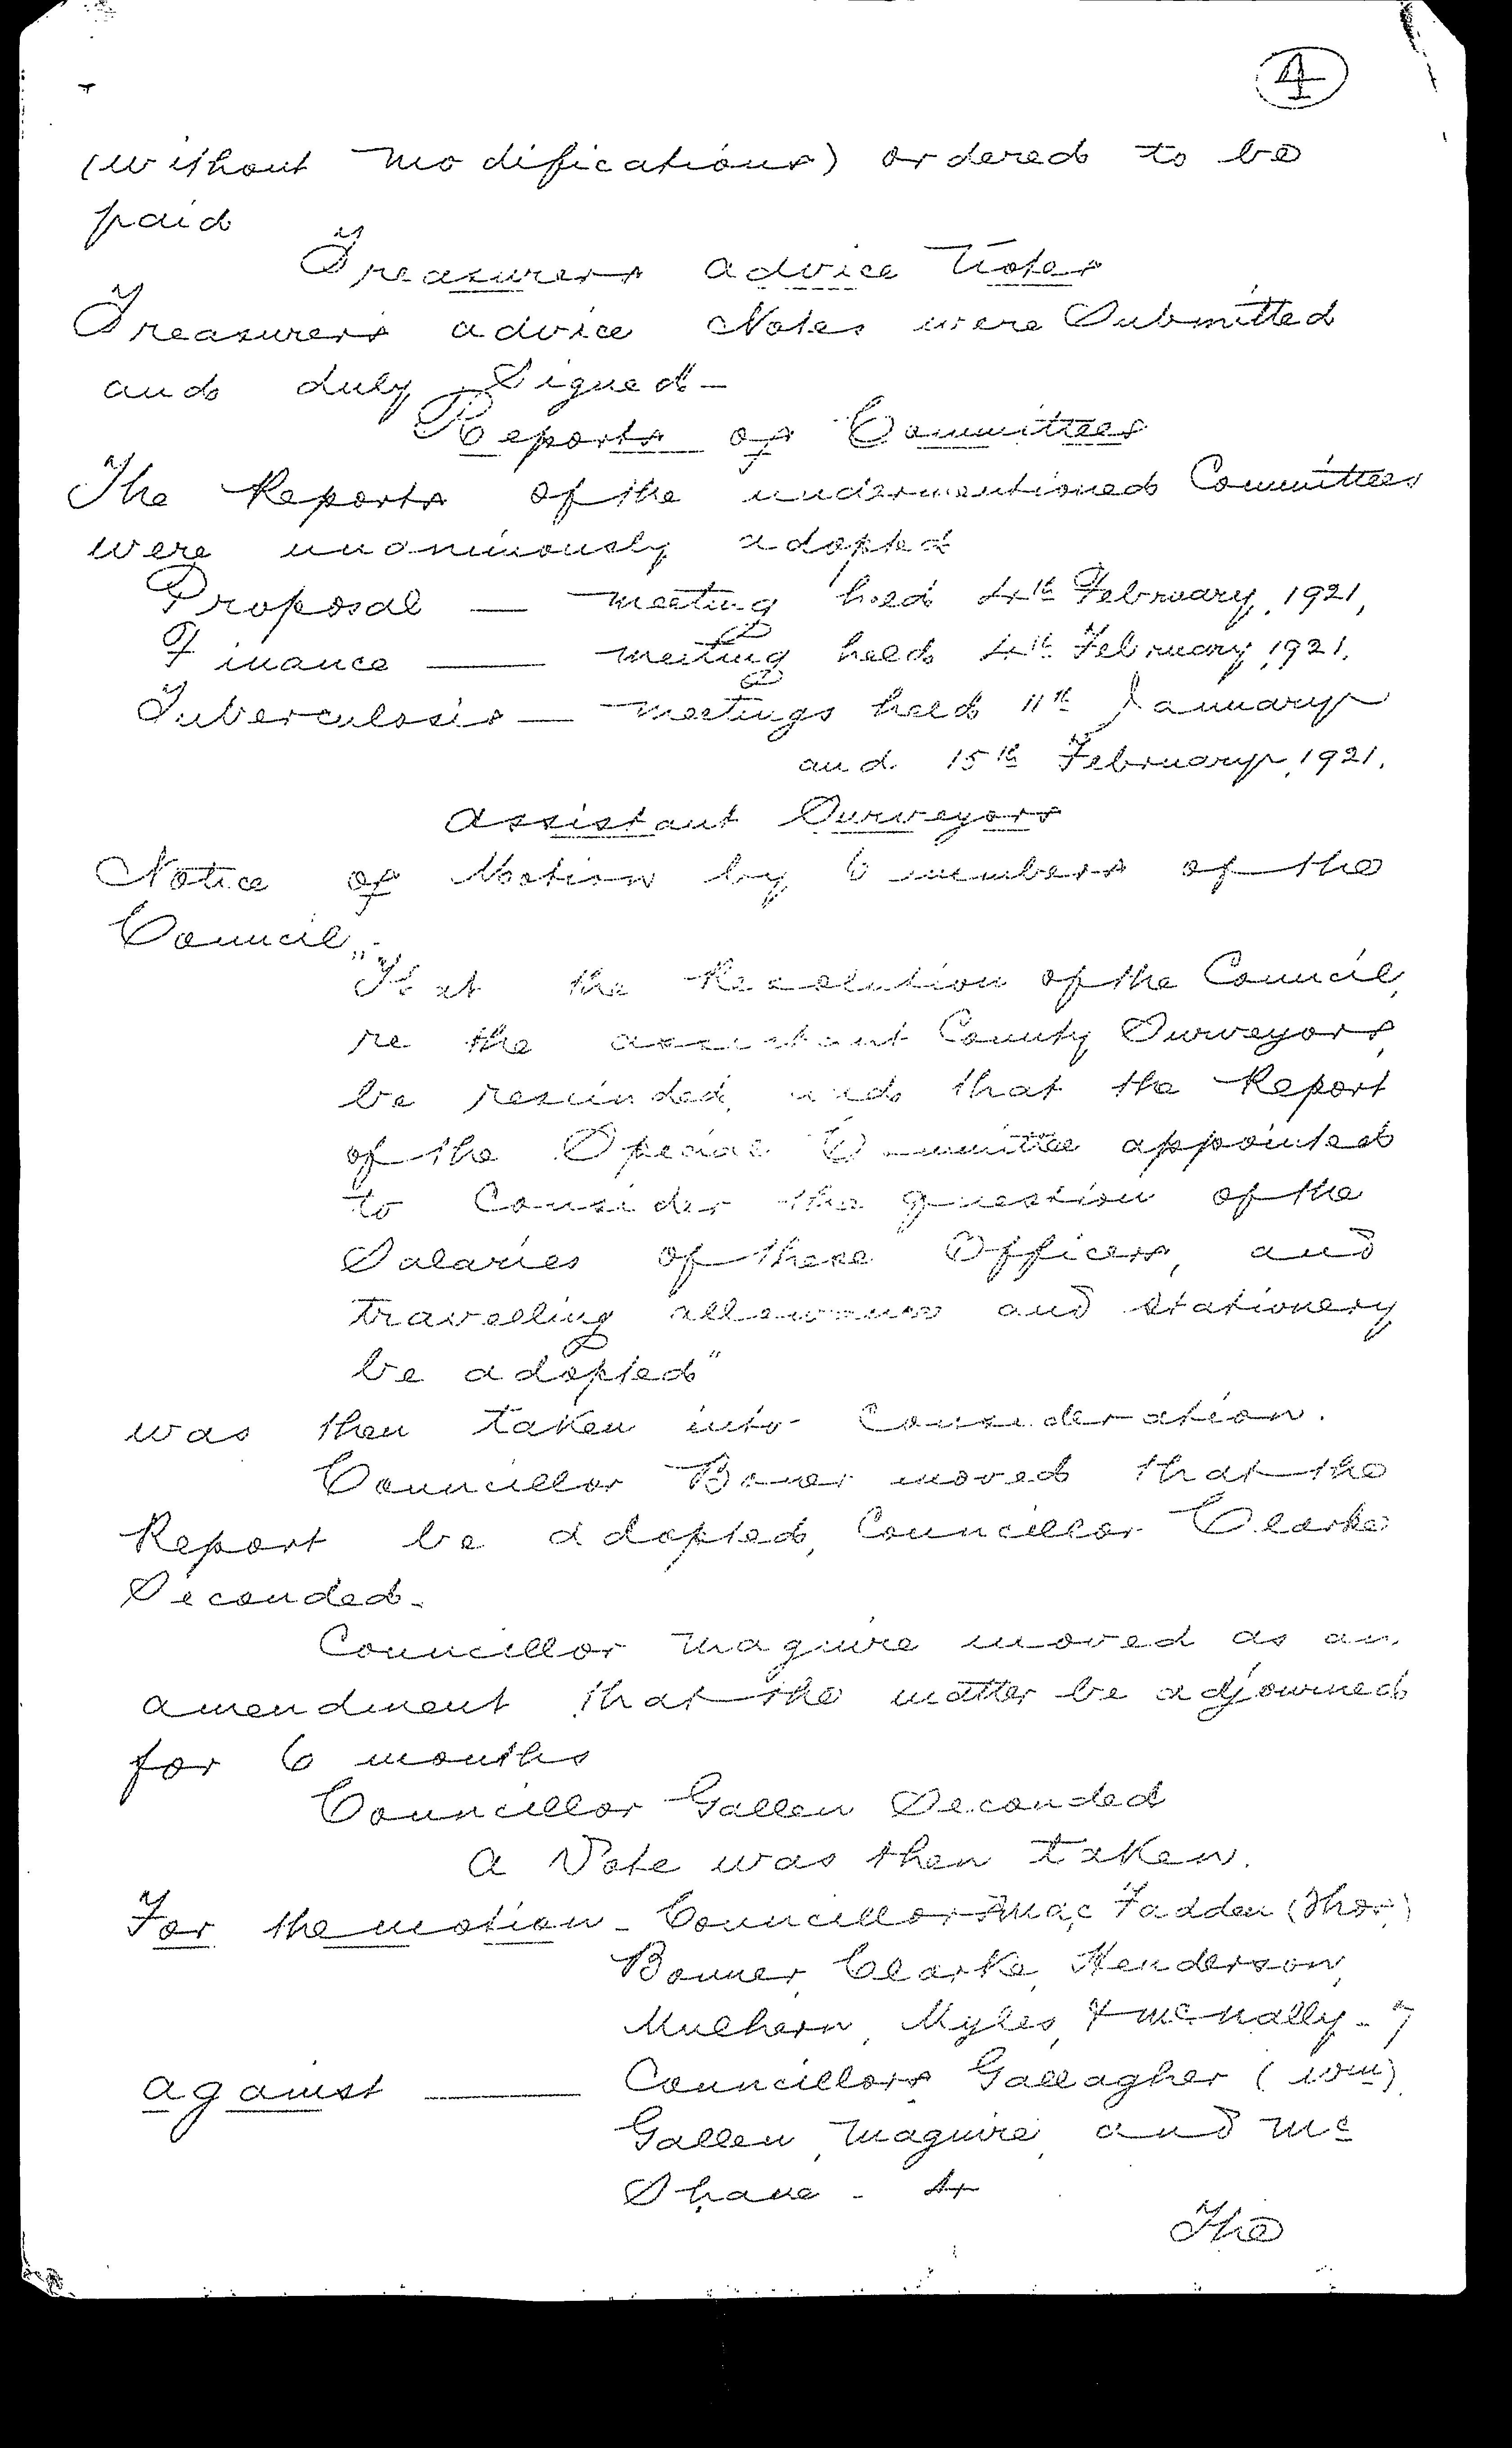 4
(without modifications) ordered to be
paid
Treasurers advice Notes
Treasurers advice Notes were Submitted
and duly Signed -
Reports of Committees
The Reports of the undermentioned Committees
were unanimously adopted
Proposal — meeting held 4th February, 1921,
Finance — meeting held 4th February, 1921.
Tuberculosis — meetings held 11th January
and 15th February, 1921.
Assistant Surveyors
Notice of Motion by 6 members of the
Council :-
"That the Resolution of the Council,
re the assistant County Surveyors,
be rescinded, and that the Report
of the Special Committee appointed
to Consider the question of the
Salaries of these Officers, and
travelling allowances and stationery
be adopted"
was then taken into Consideration.
Councillor Boner moved that the
Report be adopted, Councillor Clarke
Seconded.
Councillor Maguire moved as an
amendment that the matter be adjourned
for 6 months
Councillor Gallen Seconded
A Vote was then taken.
For the motion - Councillors MacFadden (Thos)
Bonner, Clarke, Henderson,
Mulhern, Myles, & McNally - 7
against — Councillors Gallagher (Wm)
Gallen, Maguire, and Mc
Shane - 4
The